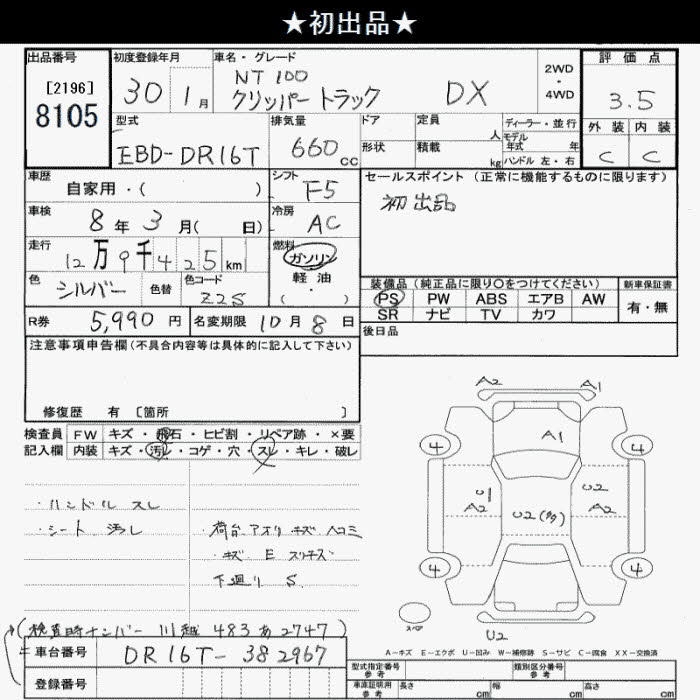 ★初出品★
出品番号
[2196]
8105
初度登録年月
30 1月
車名・グレード
NT100
クリッパートラック DX
2WD
・
4WD
評価点
3.5
外装 内装
C C
型式
EBD-DR16T
排気量
660cc
ドア
形状
定員
人
積載
kg
ディーラー・並行
モデル
年式 年
ハンドル 左・右
車歴
自家用・( )
シフト
F5
セールスポイント (正常に機能するものに限ります)
初出品
車検
8年3月( 日)
冷房
AC
走行
12万9千425km
燃料
ガソリン
軽油
( ・ )
色
シルバー
色替
色コード
Z2S
装備品(純正品に限り○をつけてください)
PS PW ABS エアB AW
SR ナビ TV カワ
新車保証書
有・無
R券 5,990円
名変期限 10月8日
後日品
注意事項申告欄(不具合内容等は具体的に記入して下さい)
修復歴 有 〔箇所 〕
検査員 FW キズ・飛石・ヒビ割・リペア跡・×要
記入欄 内装 キズ・汚レ・コゲ・穴・スレ・キレ・破レ
・ハンドル スレ
・シート 汚レ
・荷台アオリ キズ ヘコミ
・キズ E スリキズ
下廻り S
A2 A1
A1
4 4
U1
A2
U2
A2
U2(多)
4 4
スペア
U2
A−キズ E−エクボ U−凹み W−補修跡 S−サビ C−腐食 XX−交換済
(検査時ナンバー 川越 483 あ 2747)
車台番号 DR16T-382967
登録番号
型式指定番号
参考
類別区分番号
参考
車庫証明用
参考
長さ cm 幅 cm 高さ cm